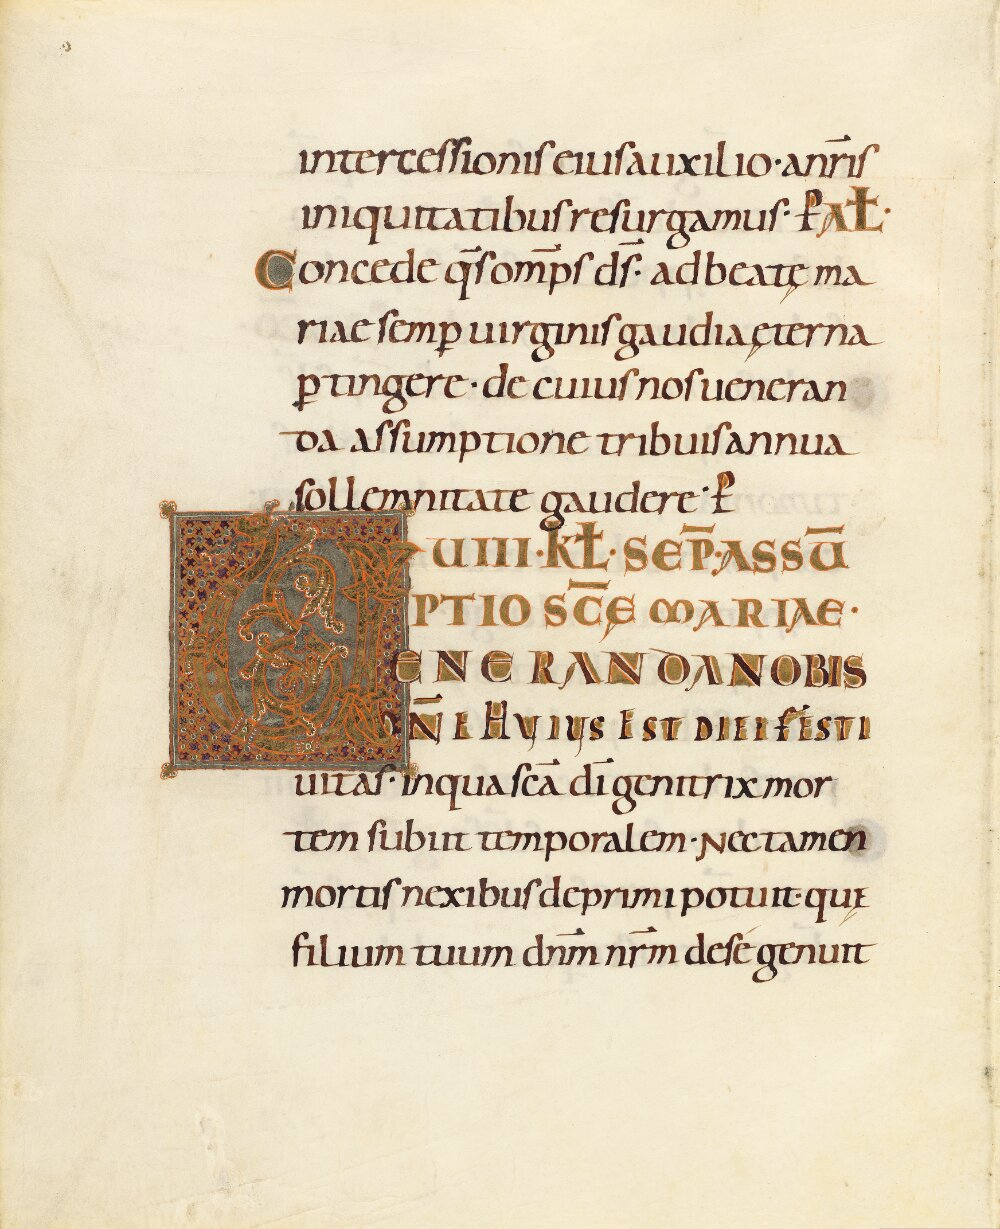 intercessionis eius auxilio · a nr̄is
iniquitatibus resurgamus · P̄ AŁ ·
Concede q̄s om̄ps d̄s · ad beatę ma
riae semꝑ uirginis gaudia ęterna
ꝑtingere · de cuius nos ueneran
da assumptione tribuis annua
sollemnitate gaudere · P̄
UIIII · KŁ · SEP̄ · ASSŪ
PTIO SC̄Ę MARIAE ·
VENERANDA NOBIS
DN̄E HUIUS EST DIEI FESTI
uitas · in qua sc̄a dī genitrix mor
tem subiit temporalem · Nec tamen
mortis nexibus deprimi potuit · quę
filium tuum dn̄m nr̄m de se genuit